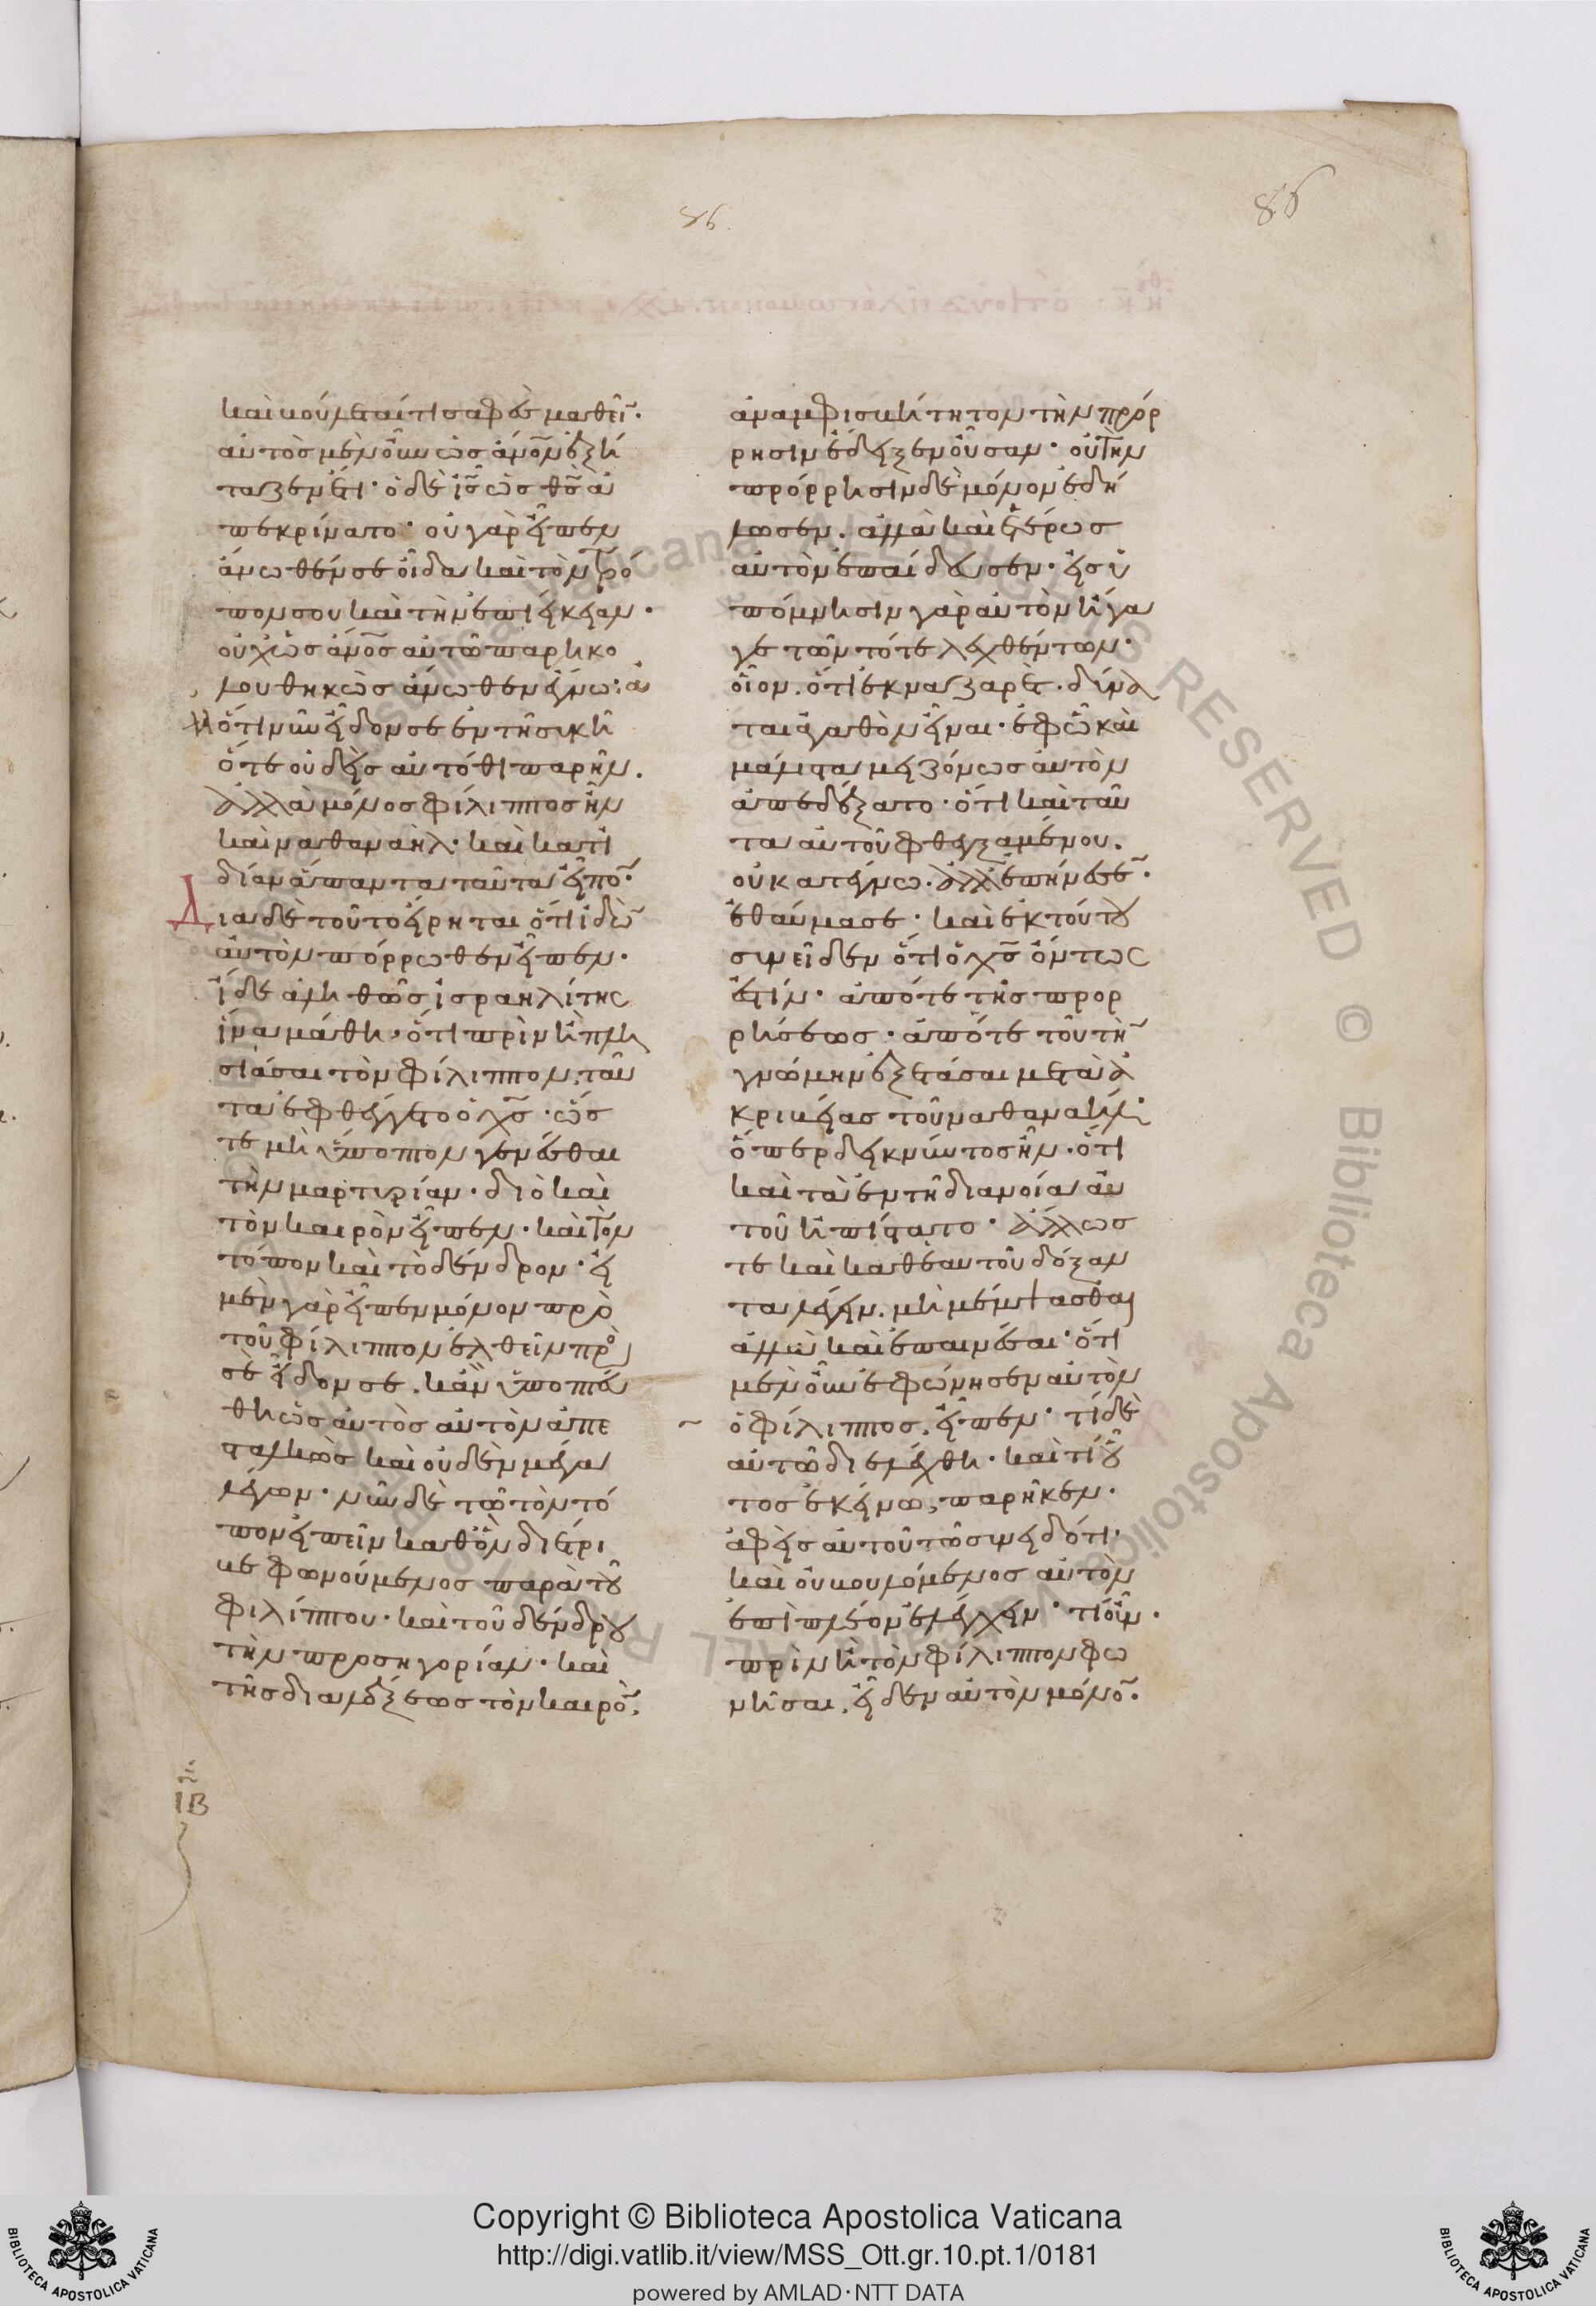 86
86
καὶ βούλεταί τι σαφὲς μαθεῖ̅.
αὐτὸς μὲν οὖν ὡς ἄνο̅ν ἐξή
ταζεν ἔτι· ὁ δὲ ι̅ς̅ ὡς θ̅ς̅ ἀ
πεκρίνατο· οὐ γὰρ εἶπεν
ἄνωθέν σε οἶδα καὶ τὸν τρό
πον σου καὶ τὴν ἐπιείκειαν·
οὐχ ὡς ἄνο̅ς αὐτῶ παρηκο
λουθηκὼς ἄνωθεν ἐκείνω· ἀ
λλ' ὅτι νῦν εἶδον σε ἐν τῆ συκῆ
ὅτε οὐδεὶς αὐτόθι παρῆν.
ἀλλὰ μόνος φίλιππος ἦν
καὶ ναθαναήλ· καὶ κατ' ἰ
δίαν ἅπαντα ταῦτα εἶπο̅·
Δια δὲ τοῦτο εἴρηται ὅτι ἰδὼ̅
αὐτὸν πόρρωθεν εἶπεν·
ἴδε ἀληθῶς ἰσραηλίτης
ἵνα μάθη· ὅτι πρὶν ἢ πλη
σιάσαι τὸν φίλιππον, ταῦ
τα ἐφθέγγετο ὁ χ̅ς̅· ὥς
τε μὴ ὕποπτον γενέσθαι
τὴν μαρτυρίαν· διὸ καὶ
τὸν καιρὸν εἶπεν· καὶ τὸν
τόπον καὶ τὸ δένδρον· εἰ
μὲν γὰρ εἶπεν μόνον πρὸ
τοῦ φίλιππον ἐλθεῖν πρό
σὲ εἶδον σε. κἂν ὑπωπτεύ
θη ὡς αὐτὸς αὐτὸν ἀπε
σταλκὼς καὶ οὐδὲν μέγα
λέγων· νῦν δὲ τῶ τὸν τό
πον εἰπεῖν καθ' ὃν διέτρι
βε φωνούμενος παρὰ τοῦ
φιλίππου· καὶ τοῦ δένδρου
τὴν προσηγορίαν· καὶ
τῆς διαλέξεως τὸν καιρό̅,
ἀναμφισβήτητον τὴν πρόρ
ρησιν ἔδειξεν οὖσαν· οὐ τὴν
πρόρρησιν δὲ μόνον ἐδή
λωσεν. ἀλλὰ καὶ ἑτέρως
αὐτὸν ἐπαίδευσεν· εἰς ὑ
πόμνησιν γὰρ αὐτὸν ἦγα
γε τῶν τότε λεχθέντων·
οἷον. ὅτι ἐκ ναζαρὲτ. δύνα
ται ἀγαθὸν εἶναι· ἐφ' ὧ καὶ
μάλιστα μειζόνως αὐτὸν
ἀπεδέξατο· ὅτι καὶ ταῦ
τα αὐτοῦ φθεγξαμένου.
οὐ κατέγνω. ἀλλ' ἐπήνεσε̅·
ἐθαύμασε· καὶ ἐκ τούτου
συνεῖδεν ὅτι ὁ χ̅ς̅ ὄντως
ἐστίν· ἀπό τε τῆς προρ
ρήσεως· ἀπό τε τοῦ τὴ̅
γνώμην ἐξετάσαι μετὰ ἀ
κριβείας τοῦ ναθαναήλ·
ὅπερ δεικνύντος ἦν· ὅτι
καὶ τὰ ἐν τῆ διανοία αὐ
τοῦ ἠπίστατο· ἄλλως
τε καὶ καθ' ἑαυτοῦ δόξαν
τα λέγειν. μὴ μέμψασθαι
ἀλλὰ καὶ ἐπαινέσαι· ὅτι
μὲν οὖν ἐφώνησεν αὐτὸν
ὁ φίλιππος, εἶπεν· τί δὲ
αὐτῶ διελέχθη· καὶ τί οὗ
τος ἐκείνω, παρῆκεν·
ἀφεὶς αὐτοῦ τῶ συνειδότι·
καὶ οὐ βουλόμενος αὐτὸν
ἐπὶ πλέον ἐλέγχειν· τί οὖν·
πρὶν ἢ τὸν φίλιππον φω
νῆσαι, εἶδεν αὐτὸν μόνο̅·
ΙΒ
RESERVED © Biblioteca Apostolica Vaticana ALL RIGHTS
Copyright © Biblioteca Apostolica Vaticana
http://digi.vatlib.it/view/MSS_Ott.gr.10.pt.1/0181
powered by AMLAD·NTT DATA
BIBLIOTECA APOSTOLICA VATICANA
BIBLIOTECA APOSTOLICA VATICANA